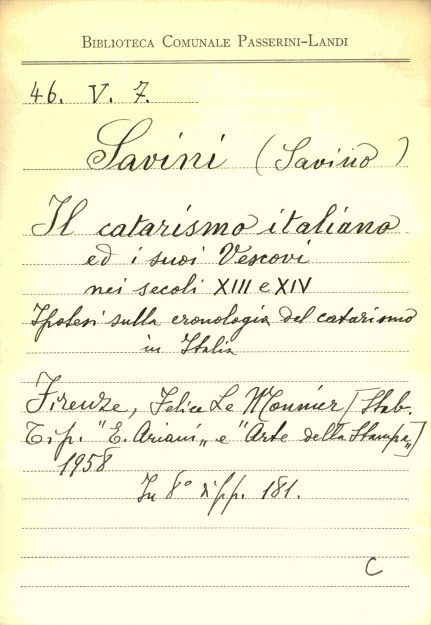 BIBLIOTECA COMUNALE PASSERINI-LANDI
46. V. 7.
Savini (Savino)
Il catarismo italiano
ed i suoi Vescovi
nei secoli XIII e XIV
Ipotesi sulla cronologia del catarismo
in Italia
Firenze, Felice Le Monnier [Stab.
Tip. "E. Ariani„ e "Arte della Stampa„]
1958
In 8° di pp. 181.
C